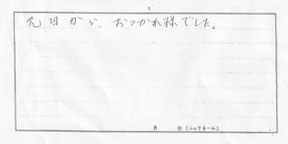 元日から、おつかれ様でした。
月　日（ニックネーム）